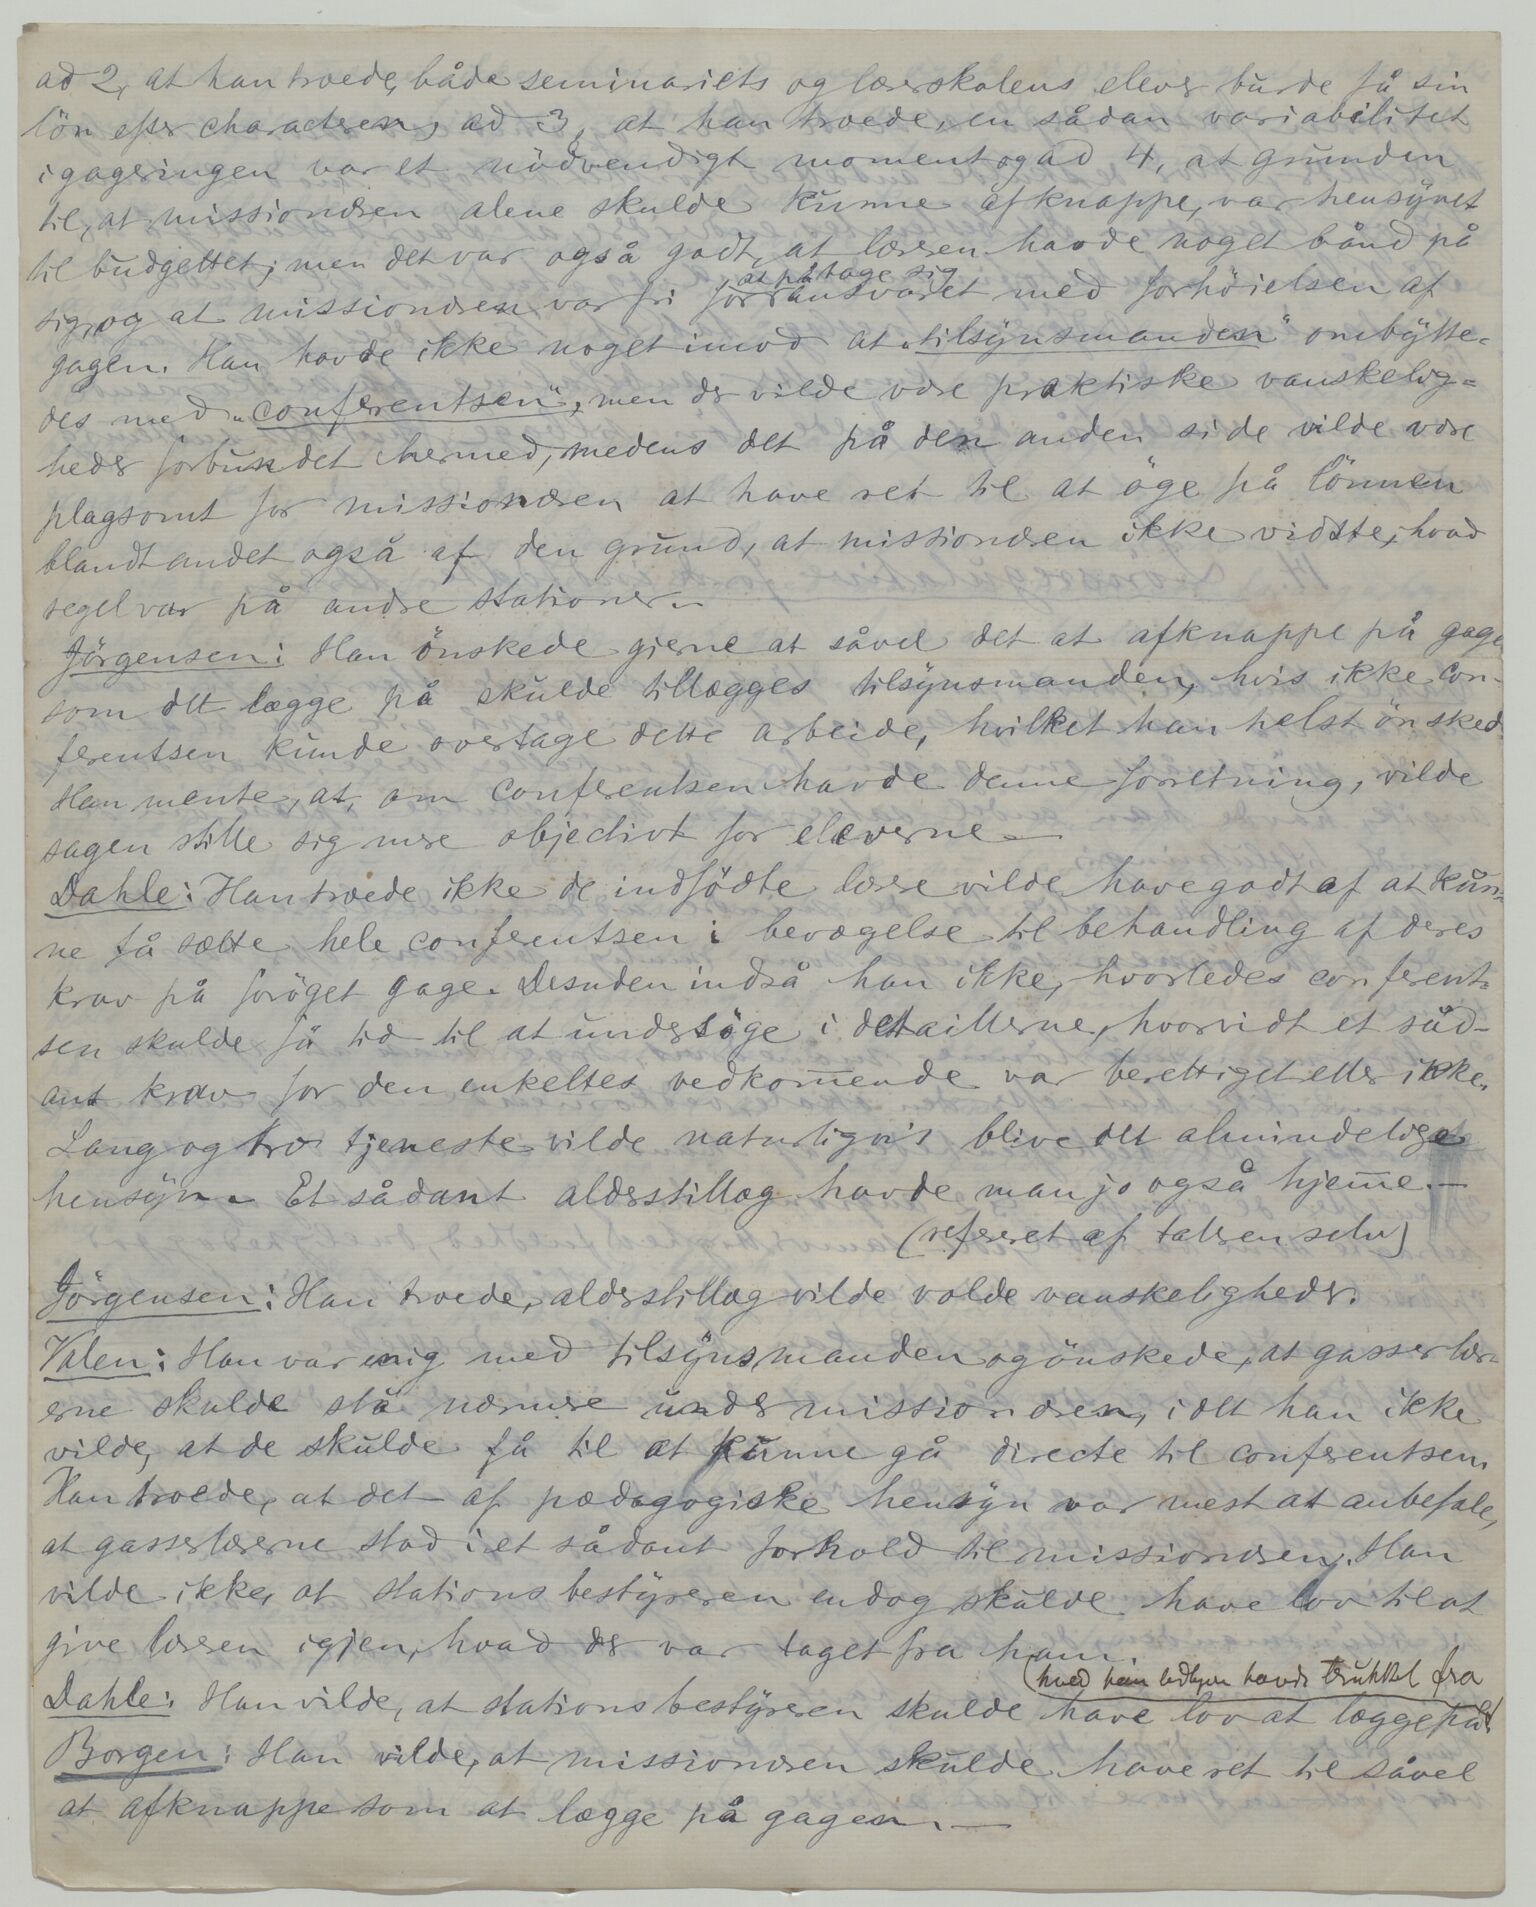 ad 2, at han troede, både seminariets og lærerskolens elever burde få sin
lön efter characteren, ad 3, at han troede, en sådan variabilitet
i gageringen var et nödvendigt moment og ad 4, at grunden
til, at missionæren alene skulde kunne afknappe, var hensynet
til budgettet; men det var også godt, at læreren havde noget bånd på
at påtage sig
sig, og at missionæren var fri for ansvaret med forhöielsen af
gagen. Han havde ikke noget imod at „tilsynsmanden" ombytte-
des med „conferentsen", men der vilde være praktiske vanskelig-
heder forbundet hermed, medens det på den anden side vilde være
plagsomt for missionæren at have ret til at öge på lönnen
blandt andet også af den grund, at missionæren ikke vidste, hvad
regel var på andre stationer.
Jörgensen: Han önskede gjerne at såvel det at afknappe på gage
som det lægge på skulde tillægges tilsynsmanden, hvis ikke con-
ferentsen kunde overtage dette arbeide, hvilket han helst önsked
Han mente, at, om conferentsen havde denne forretning, vilde
sagen stille sig mere objectivt for eleverne.—
Dahle: Han troede ikke de indfödte lærere vilde have godt af at kun-
ne få sætte hele conferentsen i bevægelse til behandling af deres
krav på foröget gage. Desuden indså han ikke, hvorledes conferent-
sen skulde få tid til at undersöge i detaillerne, hvorvidt et såd-
ant krav for den enkeltes vedkom̅ende var berettiget eller ikke.
Lang og tro tjeneste vilde naturligvis blive det almindelige
hensyn. Et sådant alderstillæg havde man jo også hjem̅e.—
(refereret af taleren selv)
Jörgensen: Han troede, alderstillæg vilde volde vanskeligheder.
Valen: Han var enig med tilsynsmanden og önskede, at gasserlær-
erne skulde stå nærmere under missionæren, idet han ikke
vilde, at de skulde få til at kunne gå directe til conferentsen.
Han troede, at det af pædagogiske hensyn var mest at anbefale,
at gasserlærerne stod i et sådant forhold til missionæren. Han
vilde ikke, at stationsbestyreren endog skulde have lov til at
give læreren igjen, hvad der var taget fra ham.
(hvad han havde trukket fra
Dahle: Han vilde, at stationsbestyreren skulde have lov at lægge på
Borgen: Han vilde, at missionæren skulde have ret til såvel
at afknappe som at lægge på gagen.—